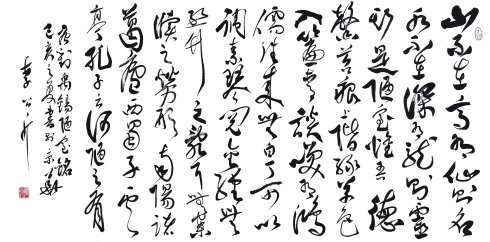 山不在高有仙則名
水不在深有龍則靈
斯是陋室惟吾德
馨苔痕上階綠草色
入簾青談笑有鴻
儒往來無白丁可以
調素琴閱金經無
絲竹之亂耳無案
牘之勞形南陽諸
葛廬西蜀子雲
亭孔子云何陋之有
唐劉禹錫陋室銘
己亥之夏書於京
李